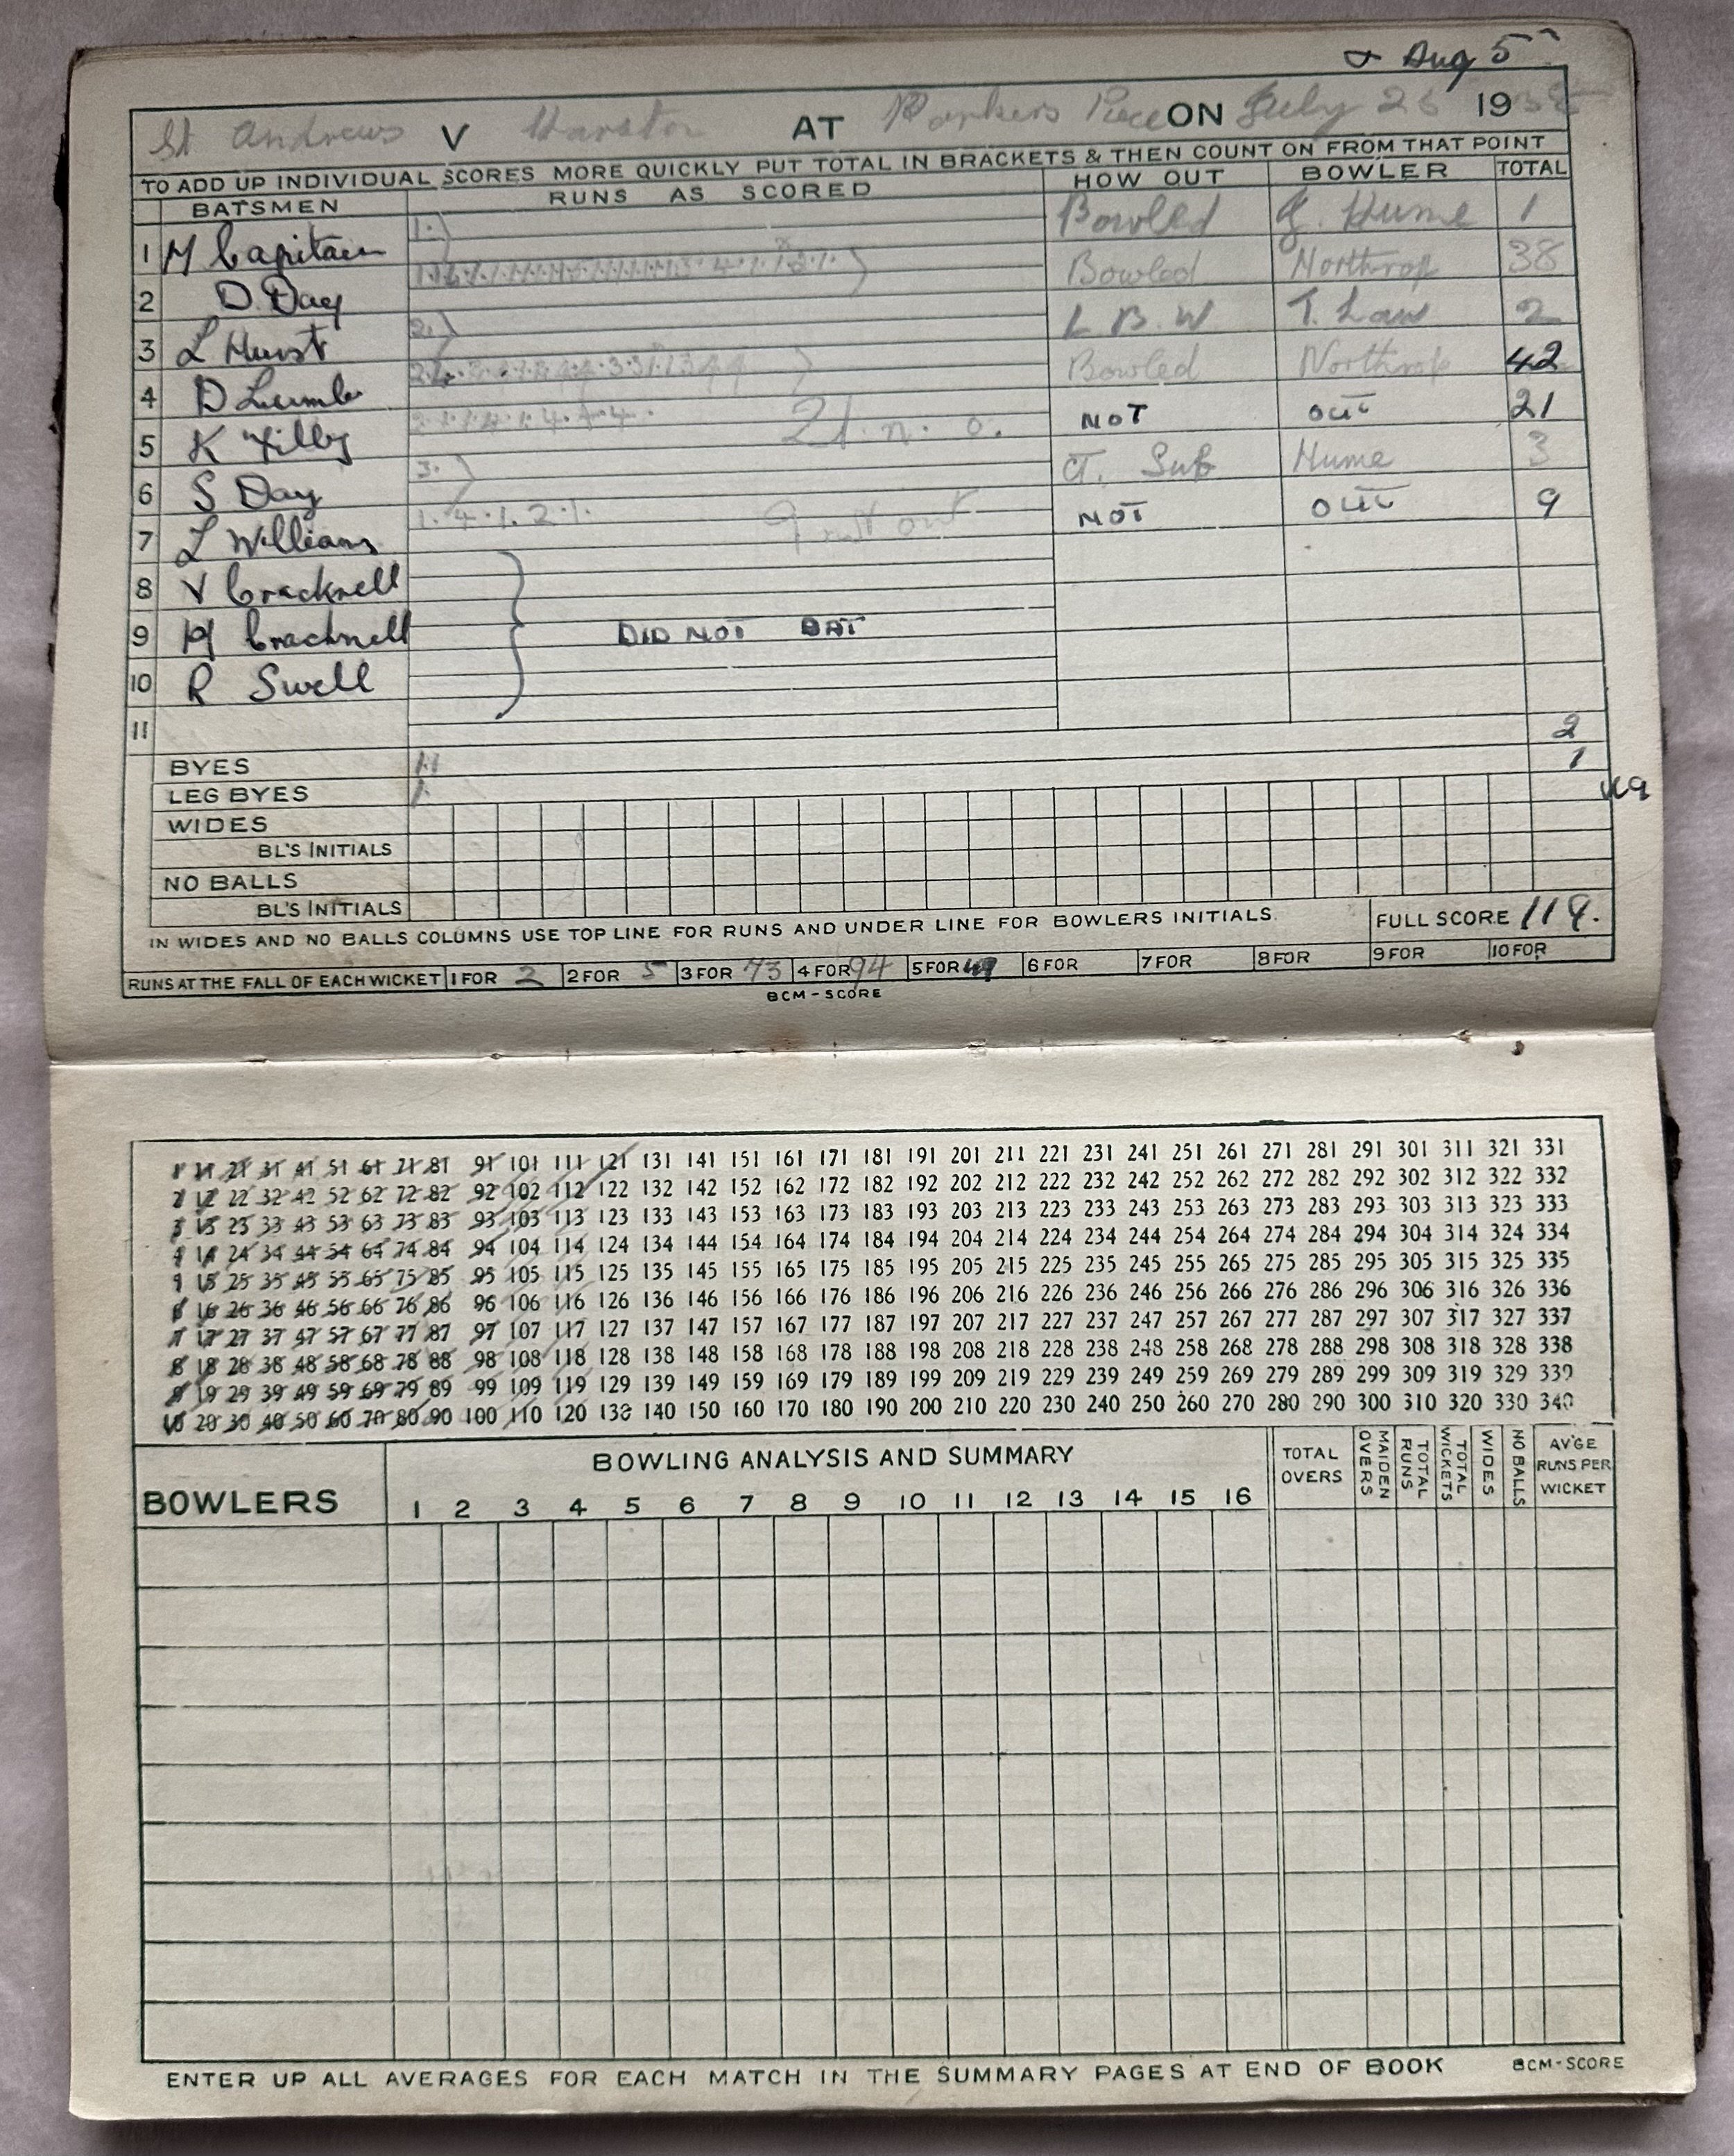 & Aug 5
St Andrews V Harston AT Parkers Piece ON July 26 19
TO ADD UP INDIVIDUAL SCORES MORE QUICKLY PUT TOTAL IN BRACKETS & THEN COUNT ON FROM THAT POINT
BATSMEN RUNS AS SCORED HOW OUT BOWLER TOTAL
1 M Capitain 1. Bowled G. Hume 1
2 D. Day Bowled Northrop 38
3 L Hurst 2. L B. W T. Law 2
4 D Lumb Bowled Northrop 42
5 K Tilby 21. n. o. NOT OUT 21
6 S Day 3. CT. Sub Hume 3
7 L Williams 1. 4. 1. 2. 1. 9 not out NOT OUT 9
8 V Cracknell
9 H Cracknell DID NOT BAT
10 R Swell
11
BYES 1.1 2
LEG BYES 1. 1
WIDES
BL'S INITIALS
NO BALLS
BL'S INITIALS
IN WIDES AND NO BALLS COLUMNS USE TOP LINE FOR RUNS AND UNDER LINE FOR BOWLERS INITIALS. FULL SCORE 119.
RUNS AT THE FALL OF EACH WICKET 1 FOR 2 2 FOR 5 3 FOR 73 4 FOR 94 5 FOR 6 FOR 7 FOR 8 FOR 9 FOR 10 FOR
BCM-SCORE
1 11 21 31 41 51 61 71 81 91 101 111 121 131 141 151 161 171 181 191 201 211 221 231 241 251 261 271 281 291 301 311 321 331
2 12 22 32 42 52 62 72 82 92 102 112 122 132 142 152 162 172 182 192 202 212 222 232 242 252 262 272 282 292 302 312 322 332
3 13 23 33 43 53 63 73 83 93 103 113 123 133 143 153 163 173 183 193 203 213 223 233 243 253 263 273 283 293 303 313 323 333
4 14 24 34 44 54 64 74 84 94 104 114 124 134 144 154 164 174 184 194 204 214 224 234 244 254 264 274 284 294 304 314 324 334
5 15 25 35 45 55 65 75 85 95 105 115 125 135 145 155 165 175 185 195 205 215 225 235 245 255 265 275 285 295 305 315 325 335
6 16 26 36 46 56 66 76 86 96 106 116 126 136 146 156 166 176 186 196 206 216 226 236 246 256 266 276 286 296 306 316 326 336
7 17 27 37 47 57 67 77 87 97 107 117 127 137 147 157 167 177 187 197 207 217 227 237 247 257 267 277 287 297 307 317 327 337
8 18 28 38 48 58 68 78 88 98 108 118 128 138 148 158 168 178 188 198 208 218 228 238 248 258 268 278 288 298 308 318 328 338
9 19 29 39 49 59 69 79 89 99 109 119 129 139 149 159 169 179 189 199 209 219 229 239 249 259 269 279 289 299 309 319 329 339
10 20 30 40 50 60 70 80 90 100 110 120 130 140 150 160 170 180 190 200 210 220 230 240 250 260 270 280 290 300 310 320 330 340
BOWLERS BOWLING ANALYSIS AND SUMMARY TOTAL OVERS MAIDEN OVERS TOTAL RUNS TOTAL WICKETS WIDES NO BALLS AV'GE RUNS PER WICKET
1 2 3 4 5 6 7 8 9 10 11 12 13 14 15 16
ENTER UP ALL AVERAGES FOR EACH MATCH IN THE SUMMARY PAGES AT END OF BOOK BCM-SCORE